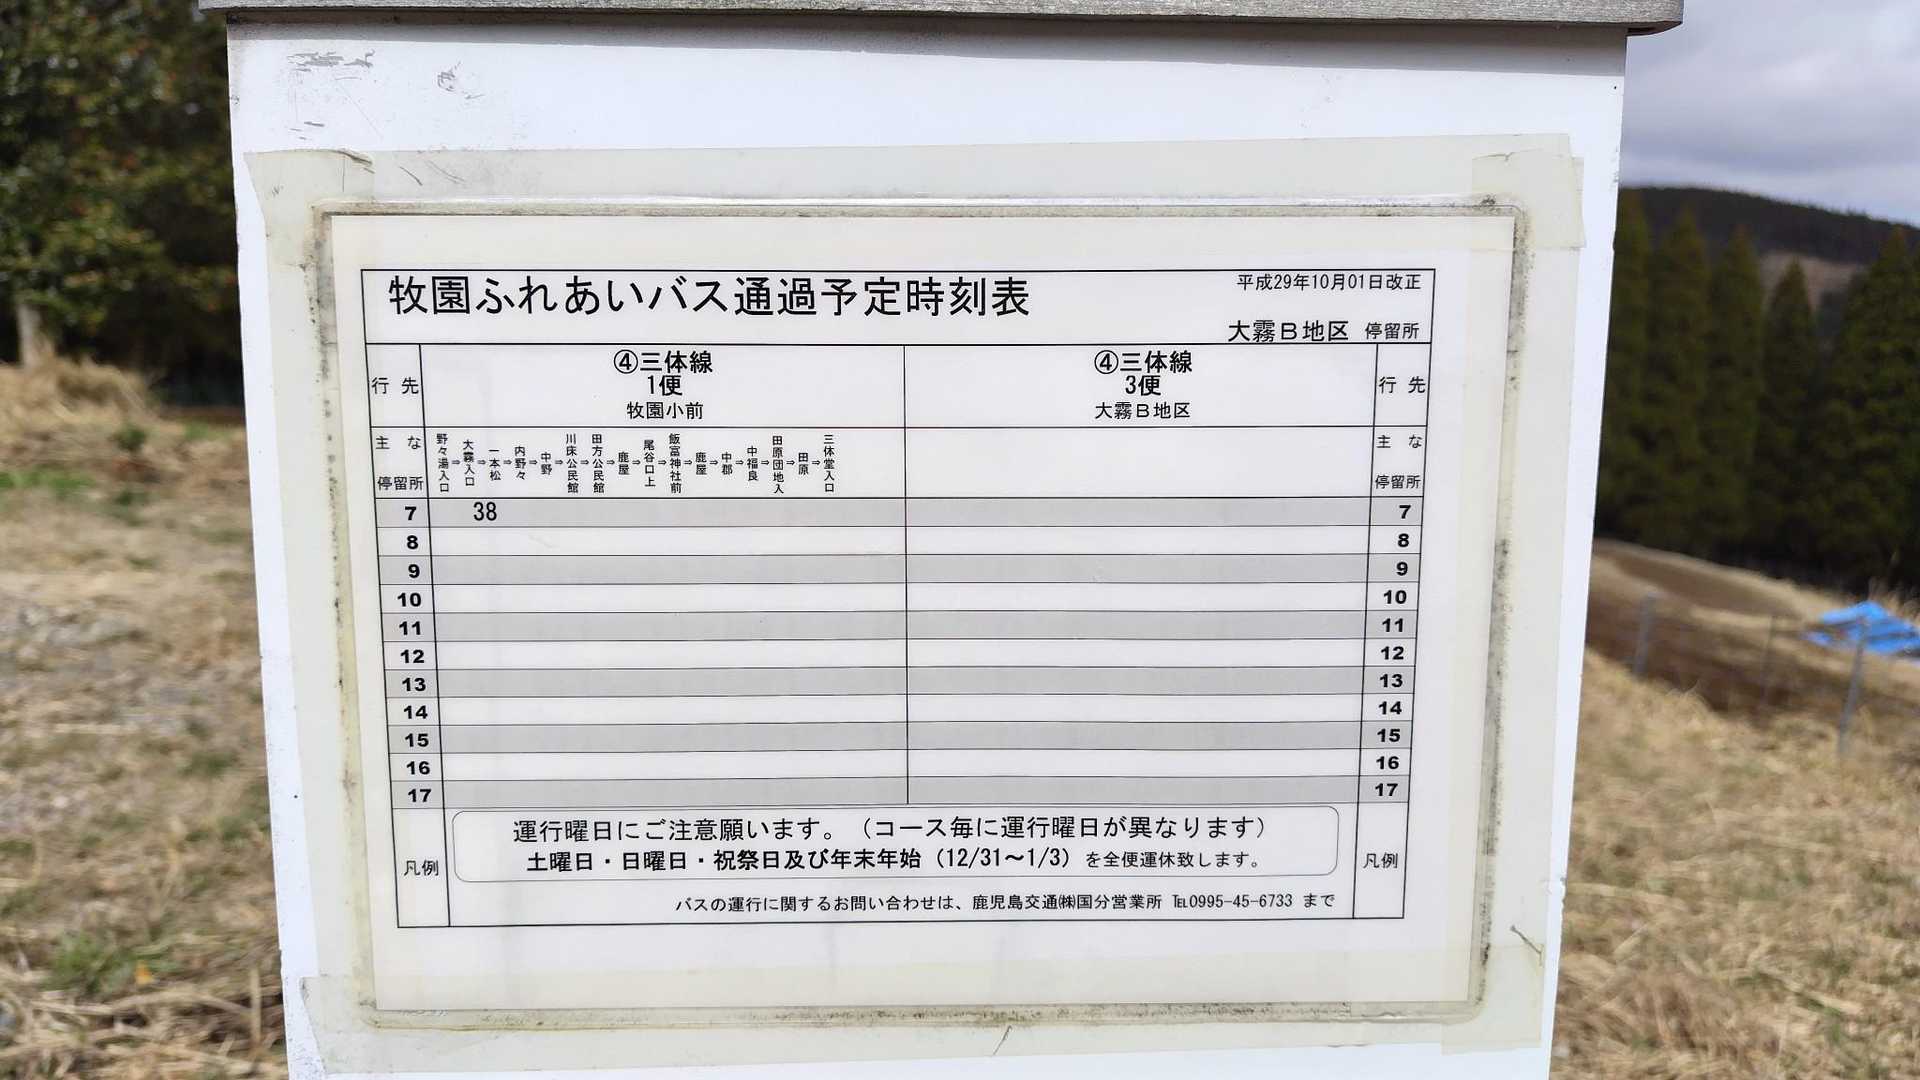 牧園ふれあいバス通過予定時刻表
平成29年10月01日改正
大霧B地区 停留所
行先 ④三体線 ④三体線 行先
1便 3便
牧園小前 大霧B地区
主な停留所 野々湯入口⇒大霧入口⇒一本松⇒内野々⇒中野⇒川床公民館⇒田方公民館⇒鹿屋⇒尾谷口上⇒飯富神社前⇒鹿屋⇒中郡⇒中福良⇒田原団地入⇒田原⇒三体堂入口 主な停留所
7 38 7
8 8
9 9
10 10
11 11
12 12
13 13
14 14
15 15
16 16
17 17
運行曜日にご注意願います。（コース毎に運行曜日が異なります）
凡例 土曜日・日曜日・祝祭日及び年末年始（12/31～1/3）を全便運休致します。 凡例
バスの運行に関するお問い合わせは、鹿児島交通㈱国分営業所 ℡0995-45-6733 まで